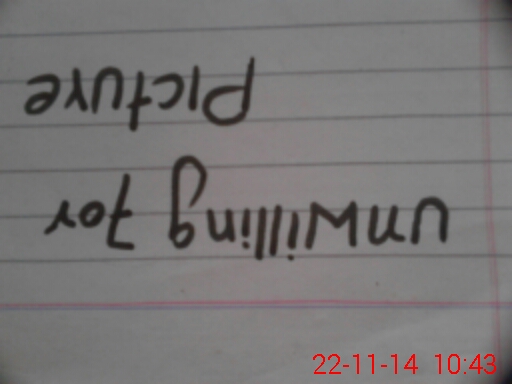 unwilling for
Picture
22-11-14 10:43